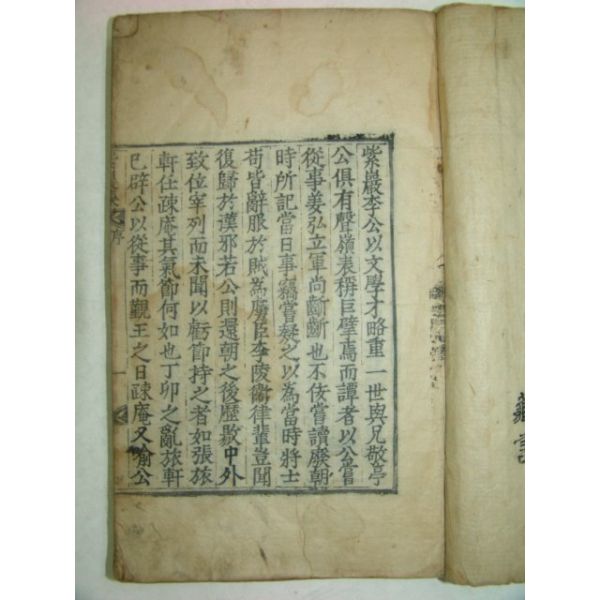 紫巖李公以文學才略重一世與兄敬亭
公俱有聲嶺表稱巨擘焉而譚者以公嘗
從事姜弘立軍尚齗齗也不佞嘗讀廢朝
時所記當日事竊嘗疑之以為當時將士
苟皆辭服於賊為虜臣李陵衛律輩豈聞
復歸於漢邪若公則還朝之後歷敭中外
致位宰列而未聞以虧節持之者如張旅
軒任疎庵其氣節何如也丁卯之亂旅軒
已辟公以從事而覲王之日疎庵又喻公
序
一